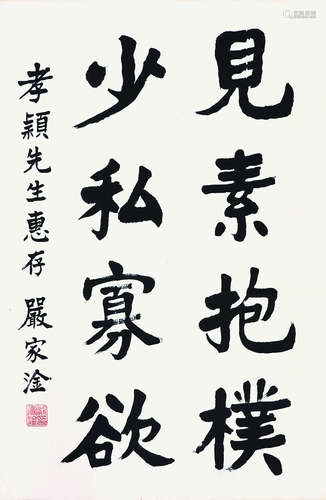 見素抱樸
少私寡欲
孝穎先生惠存 嚴家淦